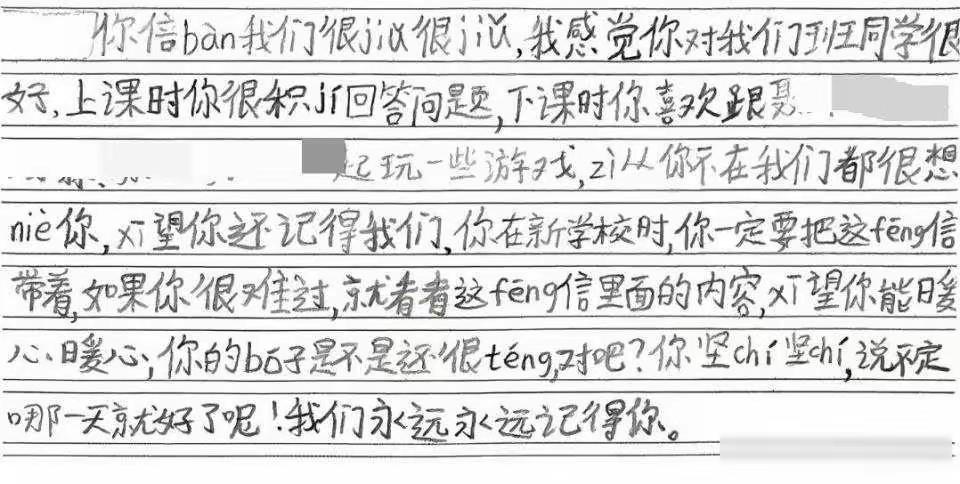 你倍bàn我们很jiǔ很jiǔ,我感觉你对我们班同学很
好,上课时你很积jí回答问题,下课时你喜欢跟
起玩一些游戏,zì从你不在我们都很想
niè你,xī望你还记得我们,你在新学校时,你一定要把这fēng信
带着,如果你很难过,就看看这fēng信里面的内容,xī望你能暖
心暖心;你的bó子是不是还很téng,对吧?你坚chí坚chí,说不定
哪一天就好了呢!我们永远永远记得你。